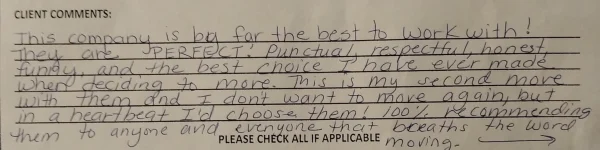 CLIENT COMMENTS:
This company is by far the best to work with!
They are PERFECT. Punctual, respectful, honest,
funny, and the best choice I have ever made
when deciding to move. This is my second move
with them and I dont want to move again, but
in a heartbeat I'd choose them! 100% recommending
them to anyone and everyone that breaths the word
PLEASE CHECK ALL IF APPLICABLE moving.